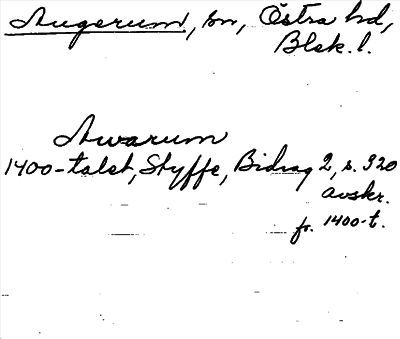 Augerum, sn, Östra hd,
Blek. l.
Awarum
1400-talet, Styffe, Bidrag 2, s. 320
avskr.
fr. 1400-t.